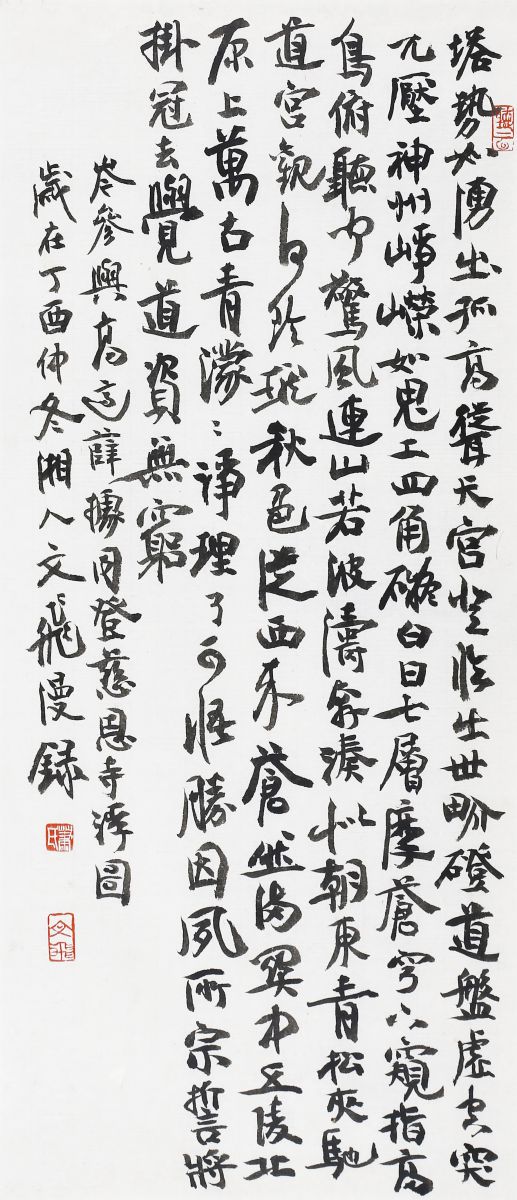 塔勢如湧出孤高聳天宮登臨出世畍磴道盤虛空突
兀壓神州崢嶸如鬼工四角礙白日七層摩蒼穹下窺指高
鳥俯聽聞驚風連山若波濤奔湊似朝東青松夾馳
道宮觀何玲瓏秋色從西來蒼然滿關中五陵北
原上萬古青濛〻淨理了可悟勝因夙所宗誓將
掛冠去覺道資無窮
岑參與高適薛據同登慈恩寺浮圖
歲在丁酉仲冬湘人文飛漫錄
蕭氏
文飛